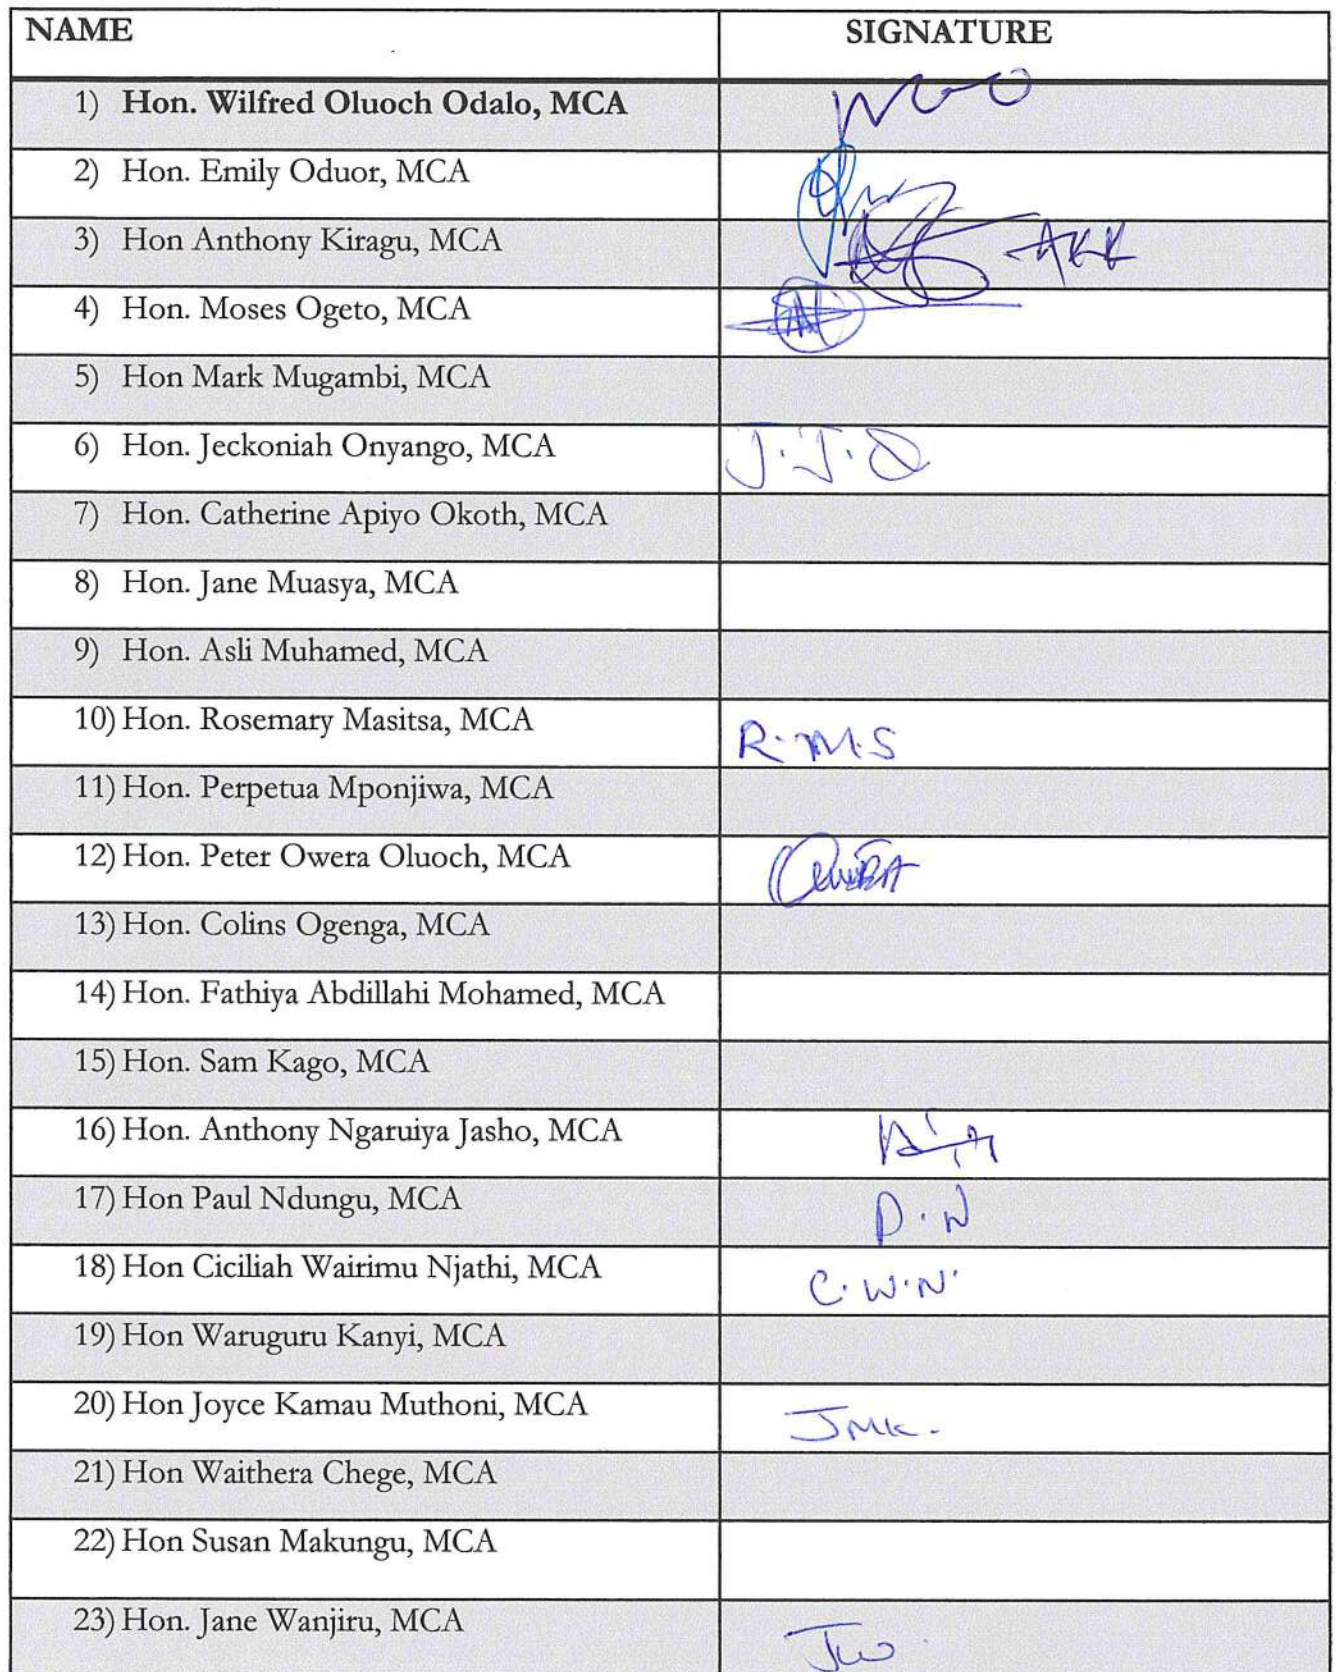 NAME SIGNATURE
1) Hon. Wilfred Oluoch Odalo, MCA
2) Hon. Emily Oduor, MCA
3) Hon Anthony Kiragu, MCA AKK
4) Hon. Moses Ogeto, MCA
5) Hon Mark Mugambi, MCA
6) Hon. Jeckoniah Onyango, MCA J.J.O
7) Hon. Catherine Apiyo Okoth, MCA
8) Hon. Jane Muasya, MCA
9) Hon. Asli Muhamed, MCA
10) Hon. Rosemary Masitsa, MCA R.M.S
11) Hon. Perpetua Mponjiwa, MCA
12) Hon. Peter Owera Oluoch, MCA
13) Hon. Colins Ogenga, MCA
14) Hon. Fathiya Abdillahi Mohamed, MCA
15) Hon. Sam Kago, MCA
16) Hon. Anthony Ngaruiya Jasho, MCA
17) Hon Paul Ndungu, MCA P.N
18) Hon Ciciliah Wairimu Njathi, MCA C.W.N.
19) Hon Waruguru Kanyi, MCA
20) Hon Joyce Kamau Muthoni, MCA JMK.
21) Hon Waithera Chege, MCA
22) Hon Susan Makungu, MCA
23) Hon. Jane Wanjiru, MCA JW